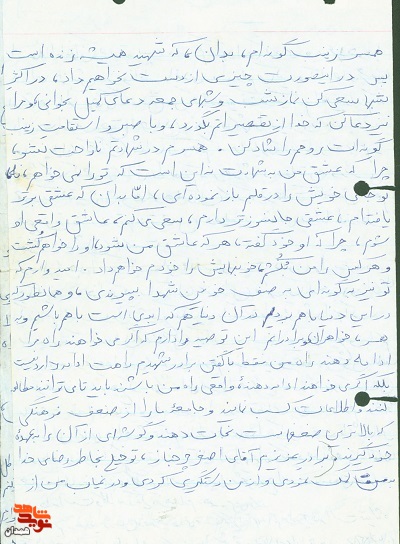 همسر زینب گونه‌ام، بدان، که شهید همیشه زنده است
پس در اینصورت چیزی از دست نخواهی داد، در اکثر
شبها سعی کن نماز شب و شبهای جمعه دعای کمیل بخوانی، و مرا
نیز دعا کن که خدا از تقصیراتم بگذرد، و با صبر و استقامت زینب
گونه‌ات روحم را شاد کن. همسرم در شهادتم ناراحت نشو،
چرا که عشق من به شهادت نه این است که تو را نمی‌خواهم،
تو جای خویش را در قلبم باز نموده‌ای، امّا بدان که عشقی برتر
یافته‌ام، عشقی جانسوزتر دارم، سعی می‌کنم، عاشق واقعی او
شوم، چرا که او خود گفته، هر که عاشق من شود، او را خواهم کشت
و هر کس را من بکُشم، خونبهایش را خودم خواهم داد. امیدوارم که
تو نیز به گونه‌ای به صف خونین شهدا بپیوندی، و همانطور که
در این دنیا با هم بودیم در آن دنیا هم که ابدی است با هم باشیم و به
خواهران و برادرانم این توصیه را دارم که اگر می‌خواهند راه مرا
ادامه دهند راه من فقط با گفتن برادر شهیدم راهت ادامه دارد نیست
بلکه اگر می‌خواهند ادامه دهندهٔ واقعی راه من باشند باید تا می‌توانند مطالعه
کنند و اطلاعات کسب نمایند و جامعهٔ ما را از ضعف فرهنگی
که بالاترین ضعفهاست نجات دهند و گوشه‌ای از آن را به عهدهٔ
خود گیرند و برادر عزیزم آقای اصغر توقیع بخاطر رضای خدا
کمک نمودی و از من دستگیری کردی و در غیاب من از
نوید شاهد
همدان